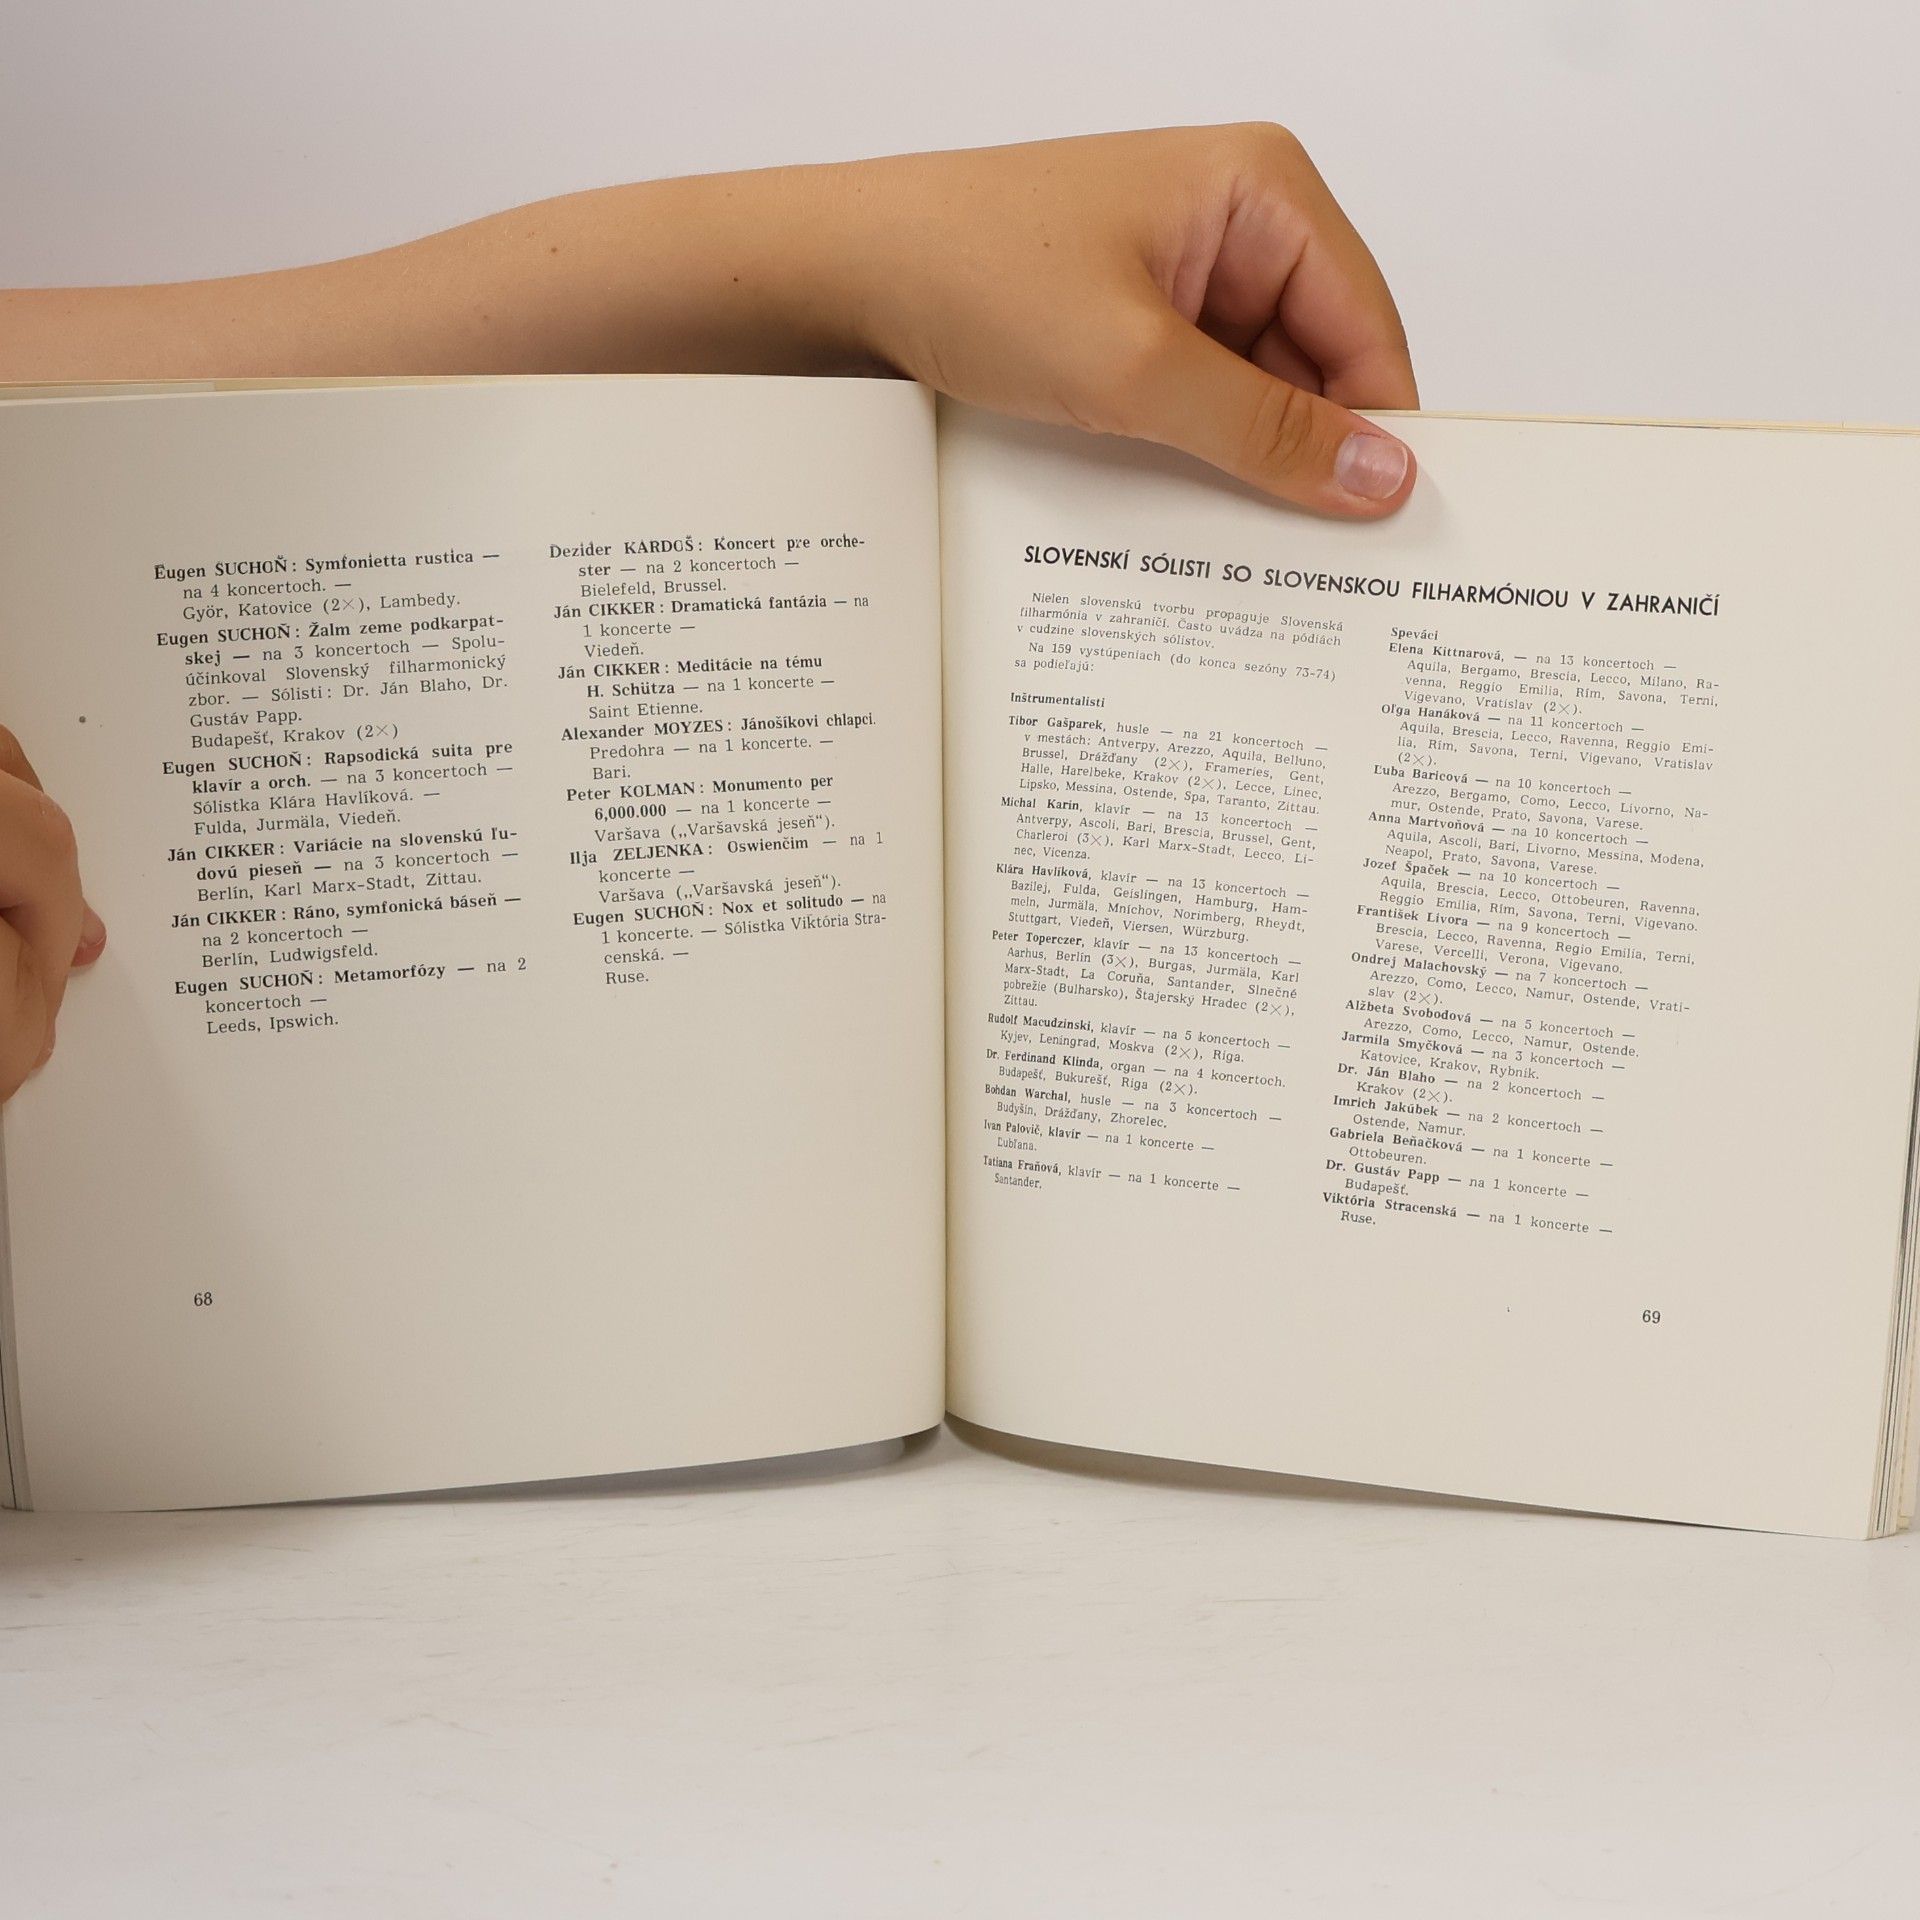 Eugen SUCHOŇ: Symfonietta rustica —
na 4 koncertoch. —
Györ, Katovice (2×), Lambedy.
Eugen SUCHOŇ: Žalm zeme podkarpat-
skej — na 3 koncertoch — Spolu-
účinkoval Slovenský filharmonický
zbor. — Sólisti: Dr. Ján Blaho, Dr.
Gustáv Papp.
Budapešť, Krakov (2×)
Eugen SUCHOŇ: Rapsodická suita pre
klavír a orch. — na 3 koncertoch —
Sólistka Klára Havlíková. —
Fulda, Jurmäla, Viedeň.
Ján CIKKER: Variácie na slovenskú ľu-
dovú pieseň — na 3 koncertoch —
Berlín, Karl Marx-Stadt, Zittau.
Ján CIKKER: Ráno, symfonická báseň —
na 2 koncertoch —
Berlín, Ludwigsfeld.
Eugen SUCHOŇ: Metamorfózy — na 2
koncertoch —
Leeds, Ipswich.
Dezider KARDOŠ: Koncert pre orche-
ster — na 2 koncertoch —
Bielefeld, Brussel.
Ján CIKKER: Dramatická fantázia — na
1 koncerte —
Viedeň.
Ján CIKKER: Meditácie na tému
H. Schütza — na 1 koncerte —
Saint Etienne.
Alexander MOYZES: Jánošíkovi chlapci.
Predohra — na 1 koncerte. —
Bari.
Peter KOLMAN: Monumento per
6,000.000 — na 1 koncerte —
Varšava („Varšavská jeseň“).
Ilja ZELJENKA: Oswienčim — na 1
koncerte —
Varšava („Varšavská jeseň“).
Eugen SUCHOŇ: Nox et solitudo — na
1 koncerte. — Sólistka Viktória Stra-
censká. —
Ruse.
68
SLOVENSKÍ SÓLISTI SO SLOVENSKOU FILHARMÓNIOU V ZAHRANIČÍ
Nielen slovenskú tvorbu propaguje Slovenská
filharmónia v zahraničí. Často uvádza na pódiách
v cudzine slovenských sólistov.
Na 159 vystúpeniach (do konca sezóny 73-74)
sa podieľajú:
Inštrumentalisti
Tibor Gašparek, husle — na 21 koncertoch —
v mestách: Antverpy, Arezzo, Aquila, Belluno,
Brussel, Drážďany (2×), Frameries, Gent,
Halle, Harelbeke, Krakov (2×), Lecce, Linec,
Lipsko, Messina, Ostende, Spa, Taranto, Zittau.
Michal Karin, klavír — na 13 koncertoch —
Antverpy, Ascoli, Bari, Brescia, Brussel, Gent,
Charleroi (3×), Karl Marx-Stadt, Lecco, Li-
nec, Vicenza.
Klára Havlíková, klavír — na 13 koncertoch —
Bazilej, Fulda, Geislingen, Hamburg, Ham-
meln, Jurmäla, Mníchov, Norimberg, Rheydt,
Stuttgart, Viedeň, Viersen, Würzburg.
Peter Toperczer, klavír — na 13 koncertoch —
Aarhus, Berlín (3×), Burgas, Jurmäla, Karl
Marx-Stadt, La Coruňa, Santander, Slnečné
pobrežie (Bulharsko), Štajerský Hradec (2×),
Zittau.
Rudolf Macudzinski, klavír — na 5 koncertoch —
Kyjev, Leningrad, Moskva (2×), Riga.
Dr. Ferdinand Klinda, organ — na 4 koncertoch.
Budapešť, Bukurešť, Riga (2×).
Bohdan Warchal, husle — na 3 koncertoch —
Budyšín, Drážďany, Zhorelec.
Ivan Palovič, klavír — na 1 koncerte —
Ľubľana.
Tatiana Fraňová, klavír — na 1 koncerte —
Santander.
Speváci
Elena Kittnarová, — na 13 koncertoch —
Aquila, Bergamo, Brescia, Lecco, Milano, Ra-
venna, Reggio Emilia, Rím, Savona, Terni,
Vigevano, Vratislav (2×).
Oľga Hanáková — na 11 koncertoch —
Aquila, Brescia, Lecco, Ravenna, Reggio Emi-
lia, Rím, Savona, Terni, Vigevano, Vratislav
(2×).
Ľuba Baricová — na 10 koncertoch —
Arezzo, Bergamo, Como, Lecco, Livorno, Na-
mur, Ostende, Prato, Savona, Varese.
Anna Martvoňová — na 10 koncertoch —
Aquila, Ascoli, Bari, Livorno, Messina, Modena,
Neapol, Prato, Savona, Varese.
Jozef Špaček — na 10 koncertoch —
Aquila, Brescia, Lecco, Ottobeuren, Ravenna,
Reggio Emilia, Rím, Savona, Terni, Vigevano.
František Livora — na 9 koncertoch —
Brescia, Lecco, Ravenna, Regio Emilia, Terni,
Varese, Vercelli, Verona, Vigevano.
Ondrej Malachovský — na 7 koncertoch —
Arezzo, Como, Lecco, Namur, Ostende, Vrati-
slav (2×).
Alžbeta Svobodová — na 5 koncertoch —
Arezzo, Como, Lecco, Namur, Ostende.
Jarmila Smyčková — na 3 koncertoch —
Katovice, Krakov, Rybník.
Dr. Ján Blaho — na 2 koncertoch —
Krakov (2×).
Imrich Jakúbek — na 2 koncertoch —
Ostende, Namur.
Gabriela Beňačková — na 1 koncerte —
Ottobeuren.
Dr. Gustáv Papp — na 1 koncerte —
Budapešť.
Viktória Stracenská — na 1 koncerte —
Ruse.
69